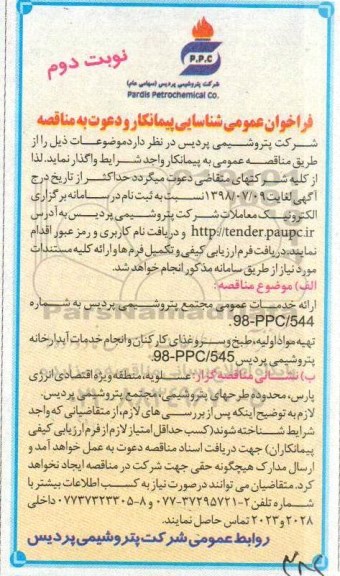 نوبت دوم
P.P.C
شرکت پتروشیمی پردیس (سهامی عام)
Pardis Petrochemical Co.
فراخوان عمومی شناسایی پیمانکار و دعوت به مناقصه
شرکت پتروشیمی پردیس در نظر دارد موضوعات ذیل را از
طریق مناقصه عمومی به پیمانکار واجد شرایط واگذار نماید. لذا
از کلیه شرکتهای متقاضی دعوت میگردد حداکثر از تاریخ درج
آگهی لغایت ۱۳۹۸/۰۷/۰۹ نسبت به ثبت نام در سامانه برگزاری
الکترونیک معاملات شرکت پتروشیمی پردیس به آدرس
http://tender.paupc.ir و دریافت نام کاربری و رمز عبور اقدام
نمایند. دریافت فرم ارزیابی کیفی و تکمیل فرم ها و ارائه کلیه مستندات
مورد نیاز از طریق سامانه مذکور انجام خواهد شد.
الف) موضوع مناقصه:
ارائه خدمات عمومی مجتمع پتروشیمی پردیس به شماره
98-PPC/544.
تهیه مواد اولیه، طبخ و سرو غذای کارکنان و انجام خدمات آبدارخانه
پتروشیمی پردیس 98-PPC/545.
ب) نشانی مناقصه گزار: عسلویه، منطقه ویژه اقتصادی انرژی
پارس، محدوده طرحهای پتروشیمی، مجتمع پتروشیمی پردیس.
لازم به توضیح اینکه پس از بررسی های لازم، از متقاضیانی که واجد
شرایط شناخته شوند (کسب حداقل امتیاز لازم از فرم ارزیابی کیفی
پیمانکاران) جهت دریافت اسناد مناقصه دعوت به عمل خواهد آمد و
ارسال مدارک هیچگونه حقی جهت شرکت در مناقصه ایجاد نخواهد
کرد. متقاضیان می توانند درصورت نیاز به کسب اطلاعات بیشتر با
شماره تلفن ۲-۳۷۲۹۵۷۲۱-۰۷۷ و ۸-۰۷۷۳۷۳۲۳۳۰۵ داخلی
۲۰۲۸ و ۲۰۲۳ تماس حاصل نمایند.
روابط عمومی شرکت پتروشیمی پردیس